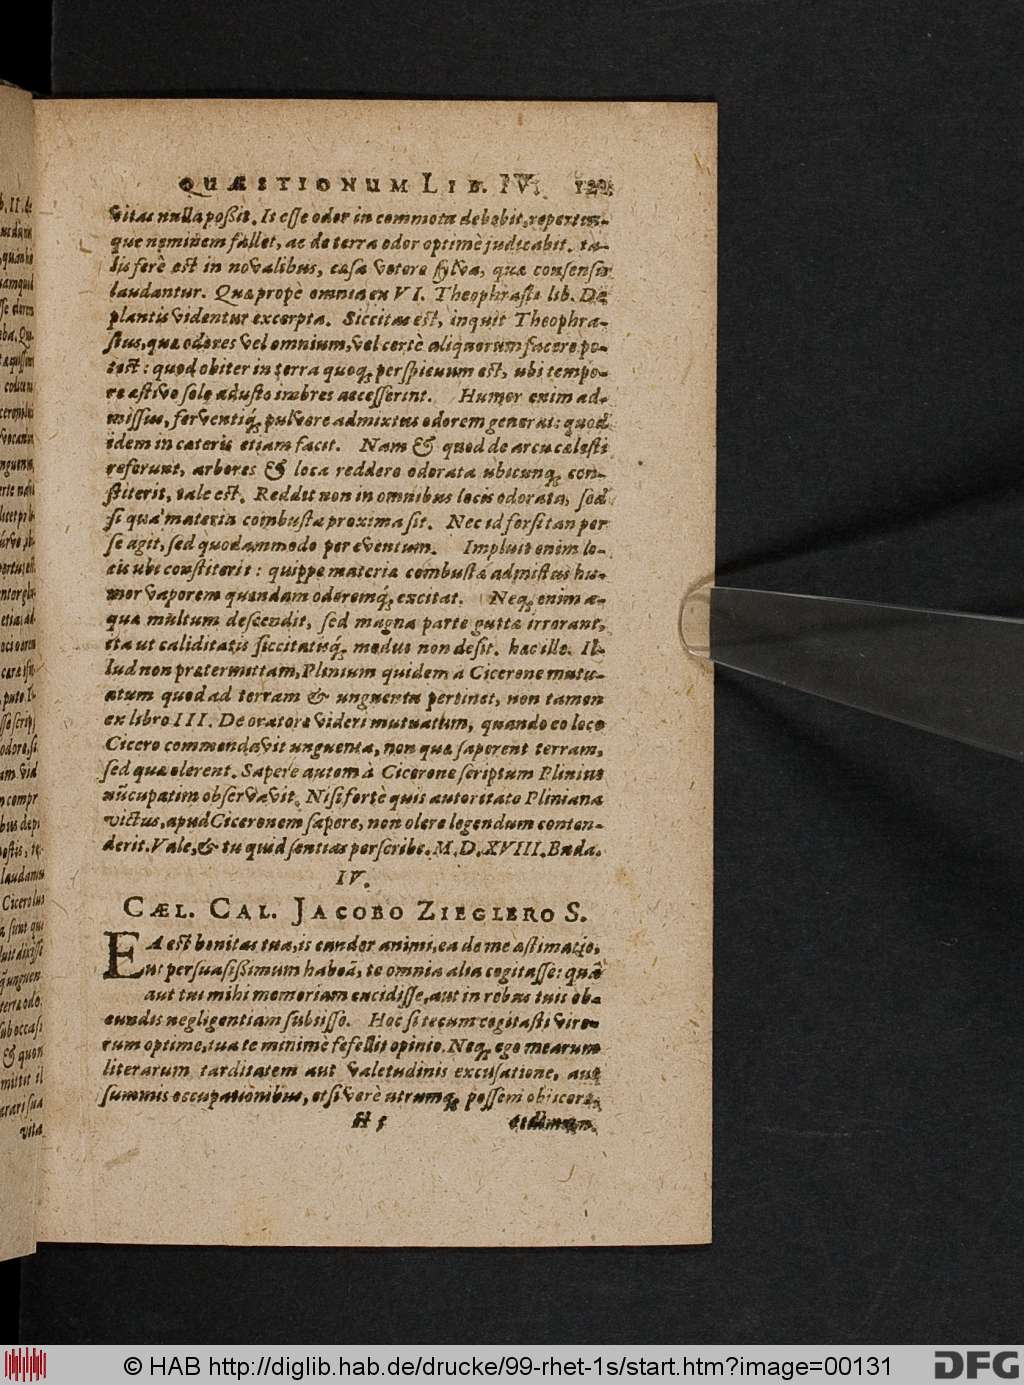 QUÆSTIONUM LIB. IV.
vitas nulla poßit. Is esse odor in commota debebit, reperten-
que neminem fallet, ac de terra odor optimè judicabit. ta-
lis ferè est in novalibus, cæsa vetere sylva, quæ consensu
laudantur. Quæ propè omnia ex VI. Theophrasti lib. De
plantis videntur excerpta. Siccitas est, inquit Theophra-
stus, quæ odores vel omnium, vel certè aliquorum facere po-
test: quod obiter in terra quoq; perspicuum est, ubi tempo-
re æstivo sole adusto imbres accesserint. Humor enim ad-
missus, ferventiq́; pulvere admixtus odorem generat: quod
idem in cæteris etiam facit. Nam & quod de arcu cælesti
referunt, arbores & loca reddere odorata ubicunq; con-
stiterit, tale est. Reddit non in omnibus locis odorata, sed
si qua materia combusta proxima sit. Nec id forsitan per
se agit, sed quodammodo per eventum. Impluit enim lo-
cis ubi constiterit: quippe materia combusta admistus hu-
mor vaporem quendam odoremq́; excitat. Neq; enim a-
qua multum descendit, sed magna parte guttæ irrorant,
ita ut caliditatis siccitatisq́; modus non desit. hæc ille. Il-
lud non prætermittam, Plinium quidem à Cicerone mutu-
atum quod ad terram & unguenta pertinet, non tamen
ex libro III. De oratore videri mutuatum, quando eo loco
Cicero commendavit unguenta, non quæ saperent terram,
sed quæ olerent. Sapere autem à Cicerone scriptum Plinius
nũcupatim observavit. Nisi fortè quis autoritate Pliniana
victus, apud Ciceronem sapere, non olere legendum conten-
derit. Vale, & tu quid sentias perscribe. M.D.XVIII. Buda.
IV.
CÆL. CAL. JACOBO ZIEGLERO S.
EA est bonitas tua, is candor animi, ea de me æstimatio,
ut persuasißimum habeã, te omnia alia cogitasse: quã
aut tui mihi memoriam excidisse, aut in rebus tuis ob-
eundis negligentiam subiisse. Hoc si tecum cogitasti viro-
rum optime, tua te minimè fefellit opinio. Neq; ego mearum
literarum tarditatem aut valetudinis excusatione, aut
summis occupationibus, etsi verè utrumq; possem obiicere,
H 5
© HAB http://diglib.hab.de/drucke/99-rhet-1s/start.htm?image=00131
DFG